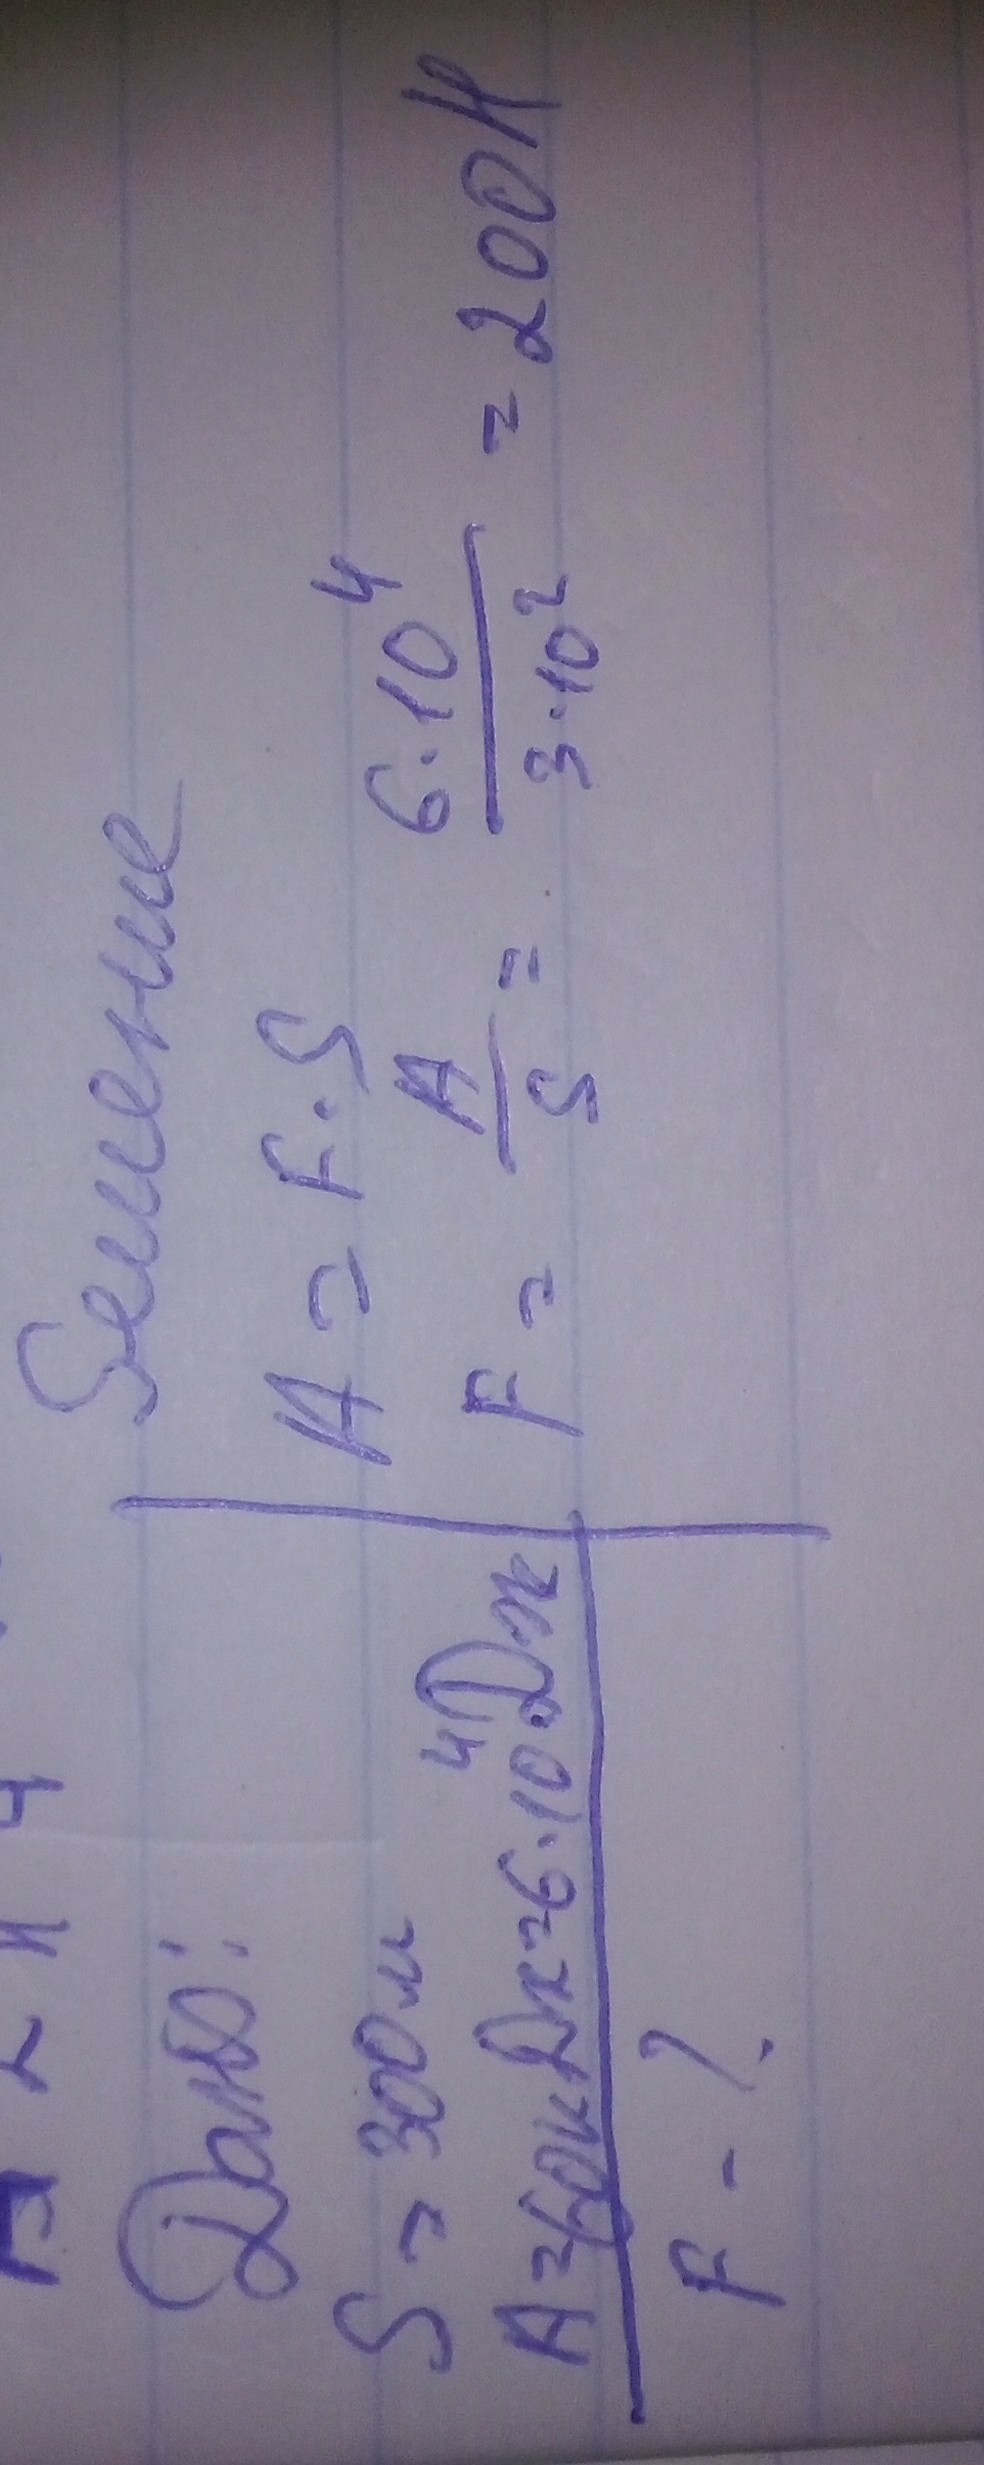 Дано:
S = 300 м
A = 60кДж = 6·10⁴ Дж
F - ?
Решение
A = F·S
F = A/S = 6·10⁴/3·10² = 200Н